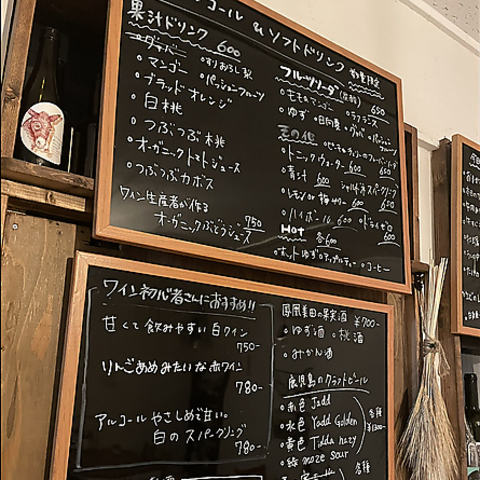 アルコール & ソフトドリンク 数量限定
果汁ドリンク 600
・グァバー ・すりおろし梨
・マンゴー ・パッションフルーツ
・ブラッドオレンジ
・白桃
・つぶつぶ桃
・オーガニックトマトジュース
・つぶつぶカボス
ワイン生産者が作る
オーガニックぶどうジュース 750
フルーツソーダ 650
・ももマンゴー ・ラフランス
・ゆず ・日向夏 ・グァバ ・パッションフルーツ
その他
・トニックウォーター 600
・青汁 600
・レモン or 梅サワー 600
・ハイボール 600
Hot 各600
・ホットゆず ・アップルティー ・コーヒー
ワイン初心者さんにおすすめ!!
甘くて飲みやすい白ワイン
750-
りんごあめみたいな赤ワイン
780-
アルコールやさしめで甘い。
白のスパークリング
780-
鳳凰美田の果実酒 ¥700-
・ゆず酒 ・桃酒
・みかん酒
鹿児島のクラフトビール
・赤色 Jadd
・水色 Yadd Golden
・黄色 Tidda hazy
・緑 moze sour
各種
¥1300-
各種